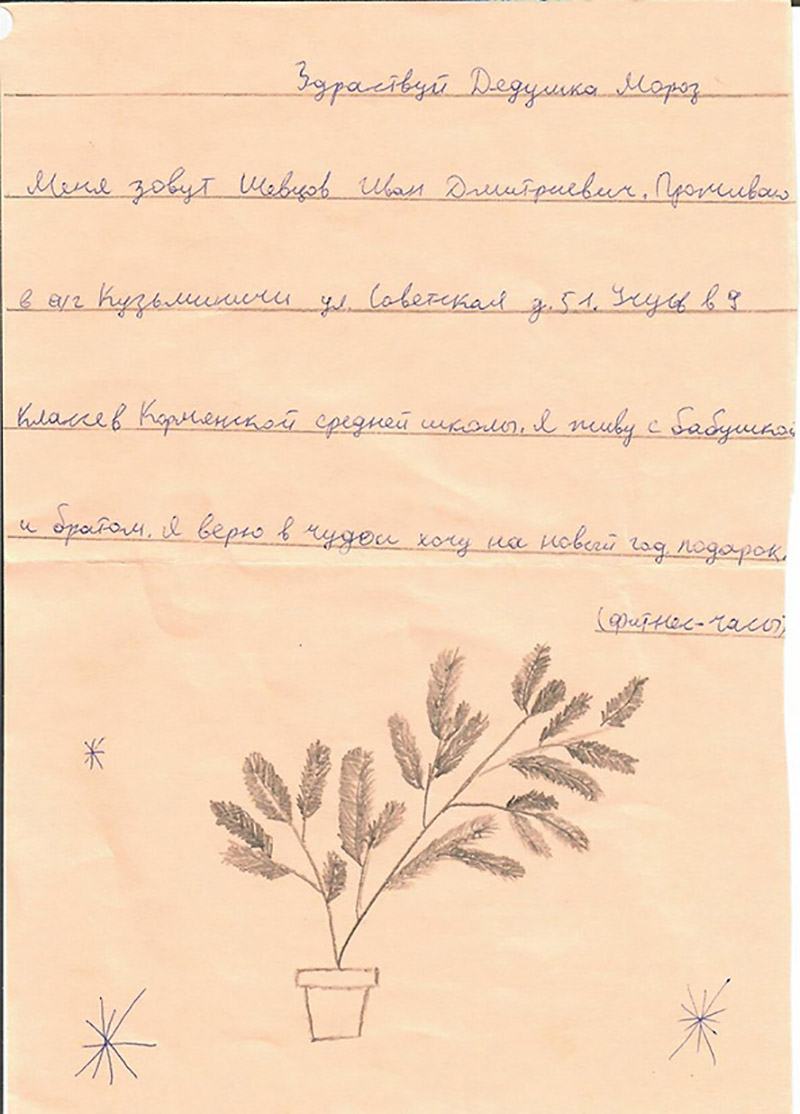 Здраствуй Дедушка Мороз
Меня зовут Шевцов Иван Дмитриевич. Проживаю
в а/г Кузьминичи ул. Советская д.51. Учусь в 9
классе в Кормянской средней школы. Я живу с бабушкой
и братом. Я верю в чудо и хочу на новый год подарок.
(фитнес-часы)